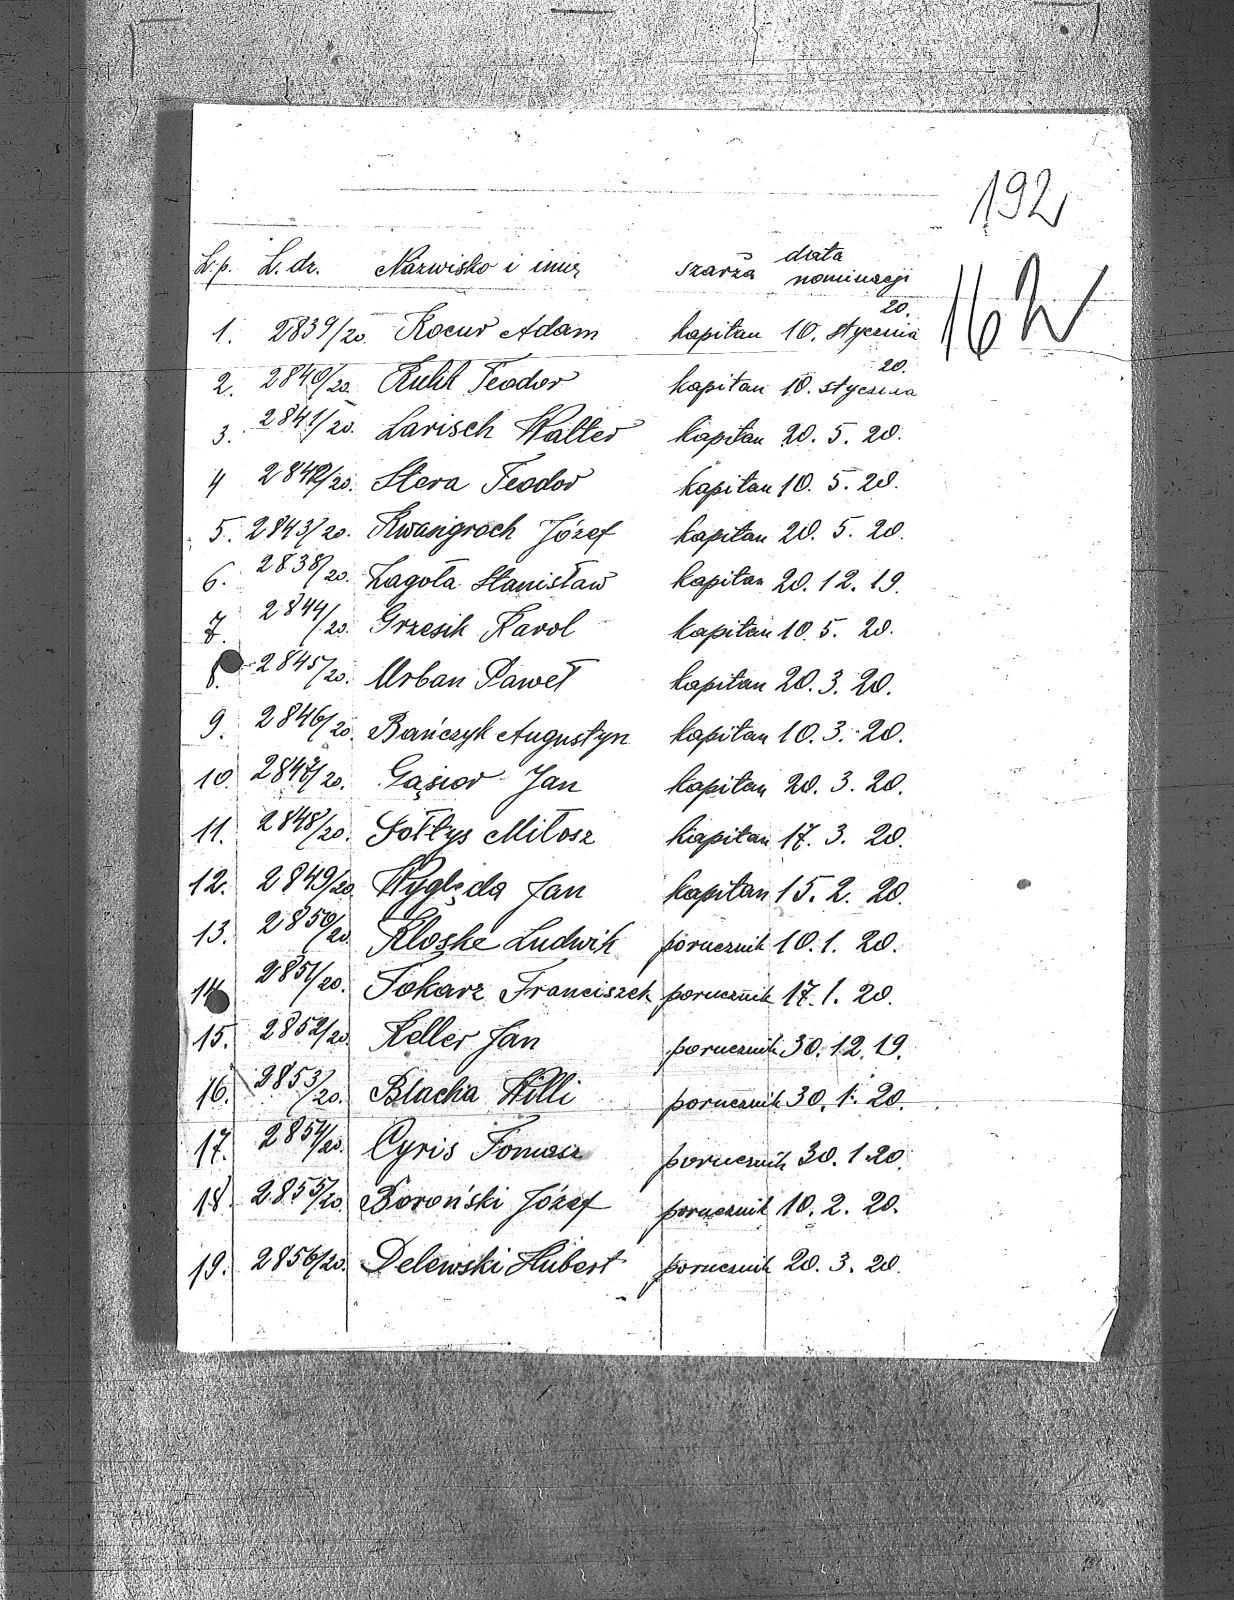 192
162
L.p. L.dz. Nazwisko i imię szarża data nominacji
1. 2839/20. Kocur Adam kapitan 10. stycznia 20.
2. 2840/20. Kulik Teodor kapitan 10. stycznia 20.
3. 2841/20. Larisch Walter kapitan 20. 5. 20.
4 2842/20. Stera Teodor kapitan 10. 5. 20.
5. 2843/20. Kwasigroch Józef kapitan 20. 5. 20.
6. 2838/20. Łagoła Stanisław kapitan 20. 12. 19.
7. 2844/20. Grzesik Karol kapitan 10. 5. 20.
8. 2845/20. Urban Paweł kapitan 20. 3. 20.
9. 2846/20. Bańczyk Augustyn kapitan 10. 3. 20.
10. 2847/20. Gąsior Jan kapitan 20. 3. 20.
11. 2848/20. Sołtys Miłosz kapitan 17. 3. 20.
12. 2849/20. Wyględa Jan kapitan 15. 2. 20.
13. 2850/20 Kloske Ludwik porucznik 10. 1. 20.
14. 2851/20. Tokarz Franciszek porucznik 17. 1. 20.
15. 2852/20 Keller Jan porucznik 30. 12. 19.
16. 2853/20. Blacha Willi porucznik 30. 1. 20.
17. 2854/20. Cyris Tomasz porucznik 30. 1. 20.
18. 2855/20. Boroński Józef porucznik 10. 2. 20.
19. 2856/20. Delewski Hubert porucznik 20. 3. 20.